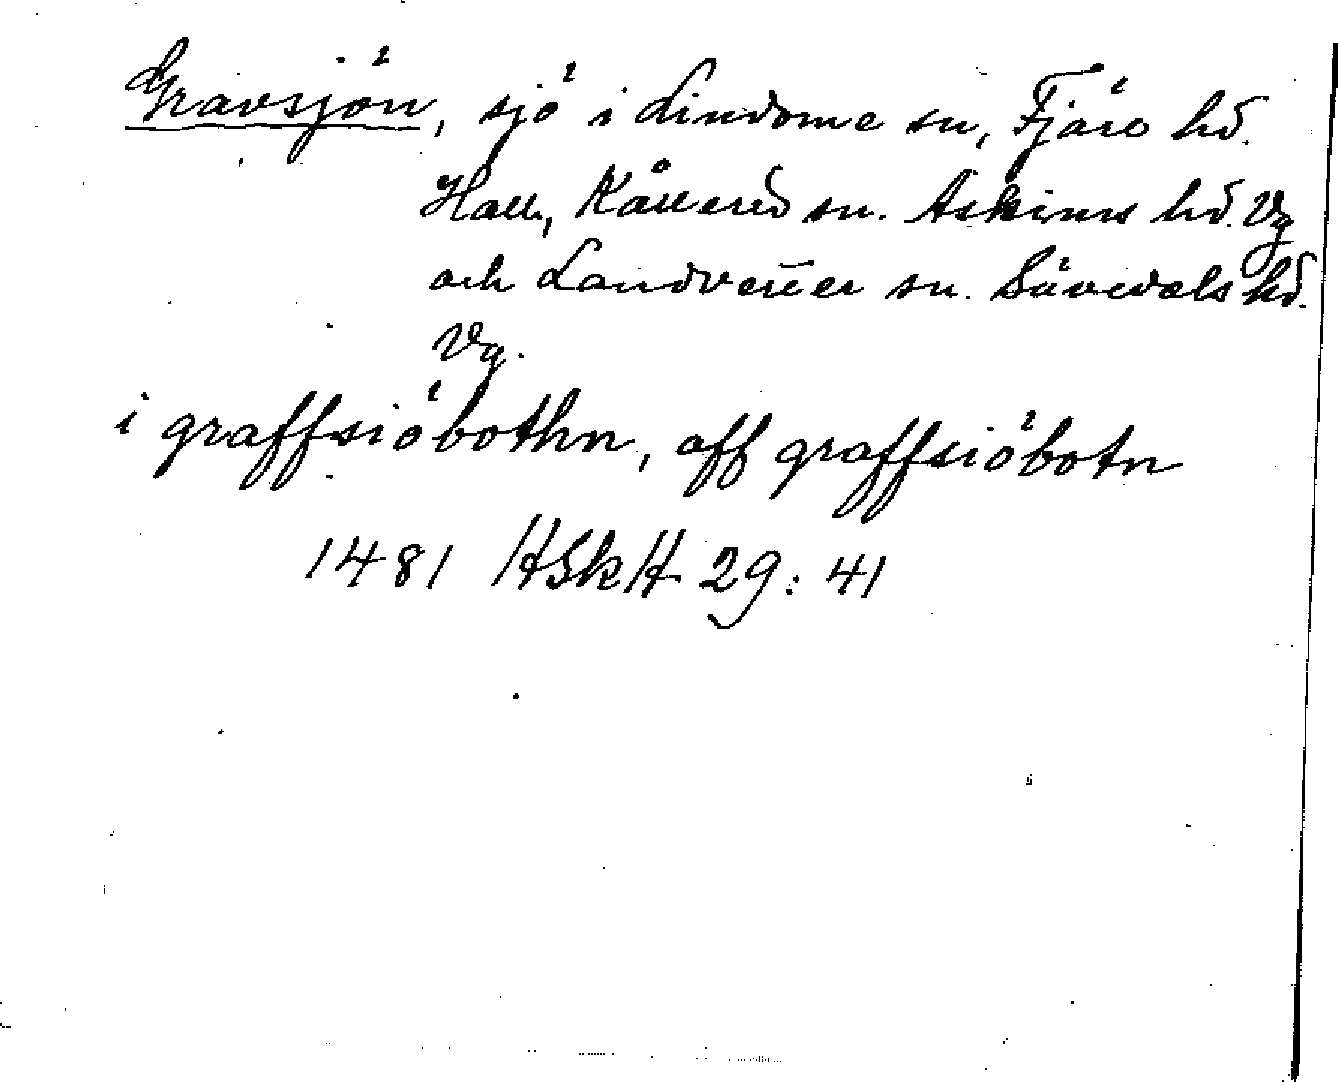 Gravsjön, sjö i Lindome sn, Fjäre hd.
Hall., Kållered sn. Askims hd. Vg
och Landvetter sn. Sävedals hd.
Vg.
i graffsiöbothn, aff graffsiöbotn
1481 HSkH 29: 41